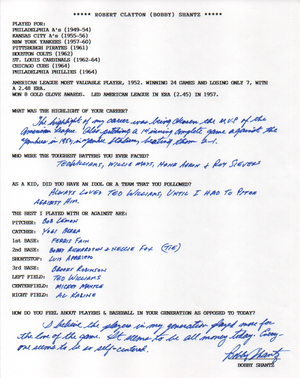 ***** ROBERT CLAYTON (BOBBY) SHANTZ *****
PLAYED FOR:
PHILADELPHIA A's (1949-54)
KANSAS CITY A's (1955-56)
NEW YORK YANKEES (1957-60)
PITTSBURGH PIRATES (1961)
HOUSTON COLTS (1962)
ST. LOUIS CARDINALS (1962-64)
CHICAGO CUBS (1964)
PHILADELPHIA PHILLIES (1964)
AMERICAN LEAGUE MOST VALUABLE PLAYER, 1952, WINNING 24 GAMES AND LOSING ONLY 7, WITH
A 2.48 ERA.
WON 8 GOLD GLOVE AWARDS. LED AMERICAN LEAGUE IN ERA (2.45) IN 1957.
WHAT WAS THE HIGHLIGHT OF YOUR CAREER?
The highlight of my career was being chosen the M.V.P. of the
American League. Also pitching a 14 inning complete game against the
Yankees in 1952, in Philadelphia, beating them 2-1.
WHO WERE THE TOUGHEST BATTERS YOU EVER FACED?
TED WILLIAMS, WILLIE MAYS, HANK AARON & ROY SIEVERS
AS A KID, DID YOU HAVE AN IDOL OR A TEAM THAT YOU FOLLOWED?
ALWAYS LOVED TED WILLIAMS, UNTIL I HAD TO PITCH
AGAINST HIM.
THE BEST I PLAYED WITH OR AGAINST ARE:
PITCHER: BOB LEMON
CATCHER: YOGI BERRA
1st BASE: FERRIS FAIN
2nd BASE: BOBBY RICHARDSON & NELLIE FOX (TIE)
SHORTSTOP: LUIS APARICIO
3rd BASE: BROOKS ROBINSON
LEFT FIELD: TED WILLIAMS
CENTERFIELD: MICKEY MANTLE
RIGHT FIELD: AL KALINE
HOW DO YOU FEEL ABOUT PLAYERS & BASEBALL IN YOUR GENERATION AS OPPOSED TO TODAY?
I believe the players in my generation played more for
the love of the game. It seems to be all money today. Every-
one seems to be so self-centered.
Bobby Shantz
BOBBY SHANTZ